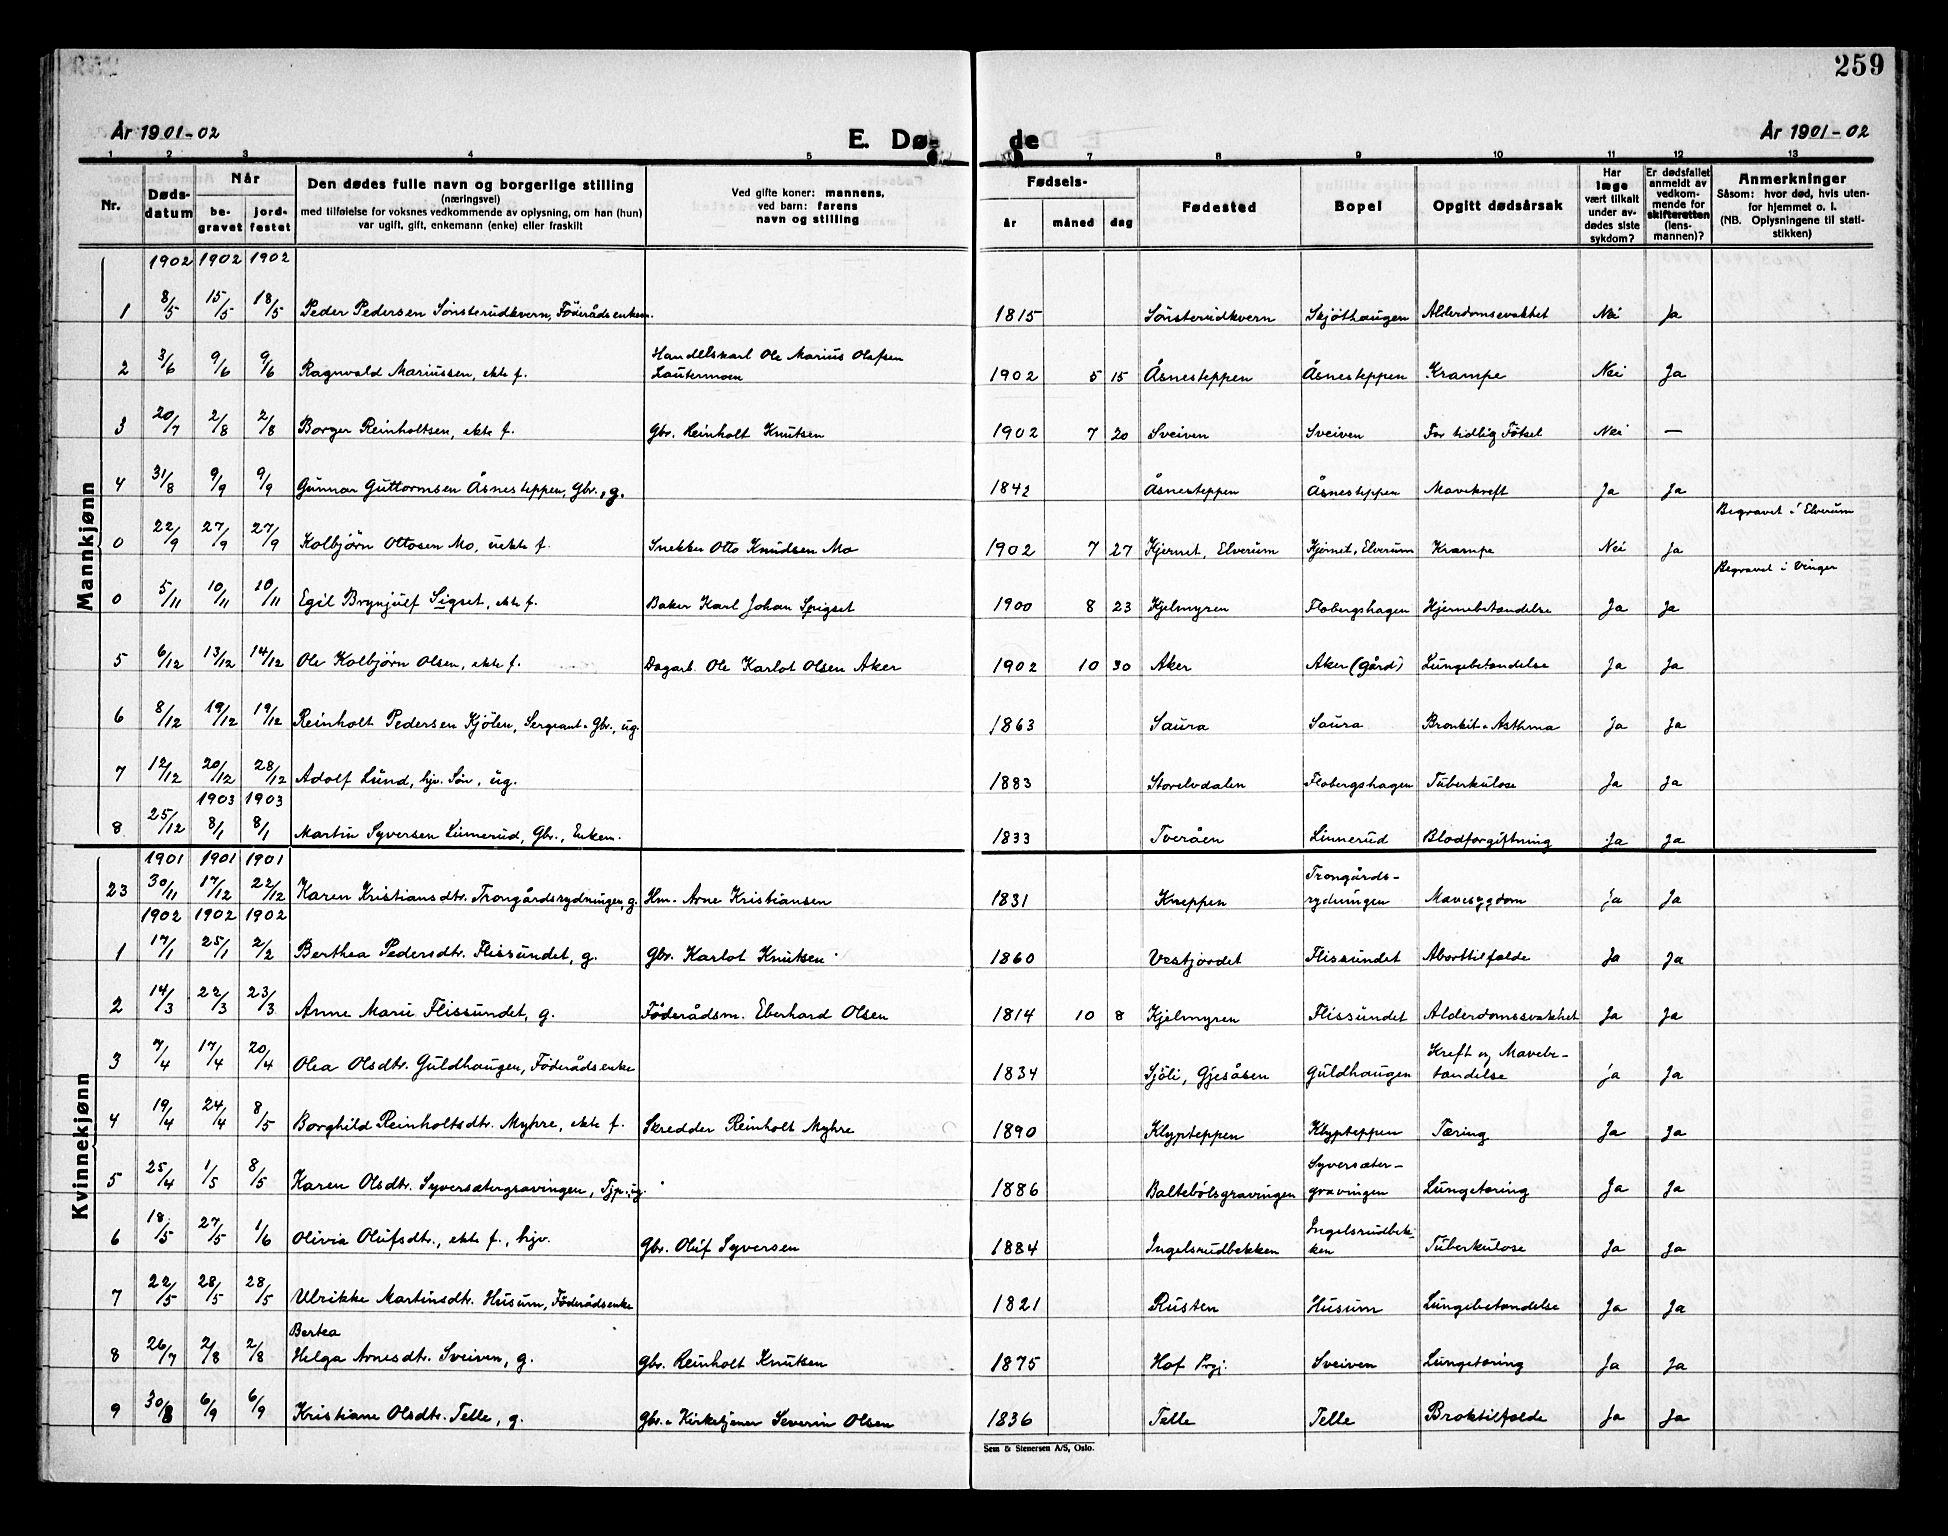 259
År 1901-02
E. Døde
År 1901-02
1 2 3 4 5 7 8 9 10 11 12 13
Nr. Døds-datum Når be-gravet jord-festet Den dødes fulle navn og borgerlige stilling (næringsvei) med tilføielse for voksnes vedkommende av oplysning, om han (hun) var ugift, gift, enkemann (enke) eller fraskilt Ved gifte koner: mannens, ved barn: farens navn og stilling Fødsels- år måned dag Fødested Bopel Opgitt dødsårsak Har læge vært tilkalt under av-dødes siste sykdom? Er dødsfallet anmeldt av vedkom-mende for skifteretten (lens-mannen)? Anmerkninger Såsom: hvor død, hvis uten-for hjemmet o. l. (NB. Oplysningene til stati-stikken)
Mannkjønn
1902 1902 1902
1 8/5 15/5 18/5 Peder Pedersen Sönsterudkvern, Föderådsenkem. 1815 Sönsterudkvern Skjöthaugen Alderdomsvakhet Nei Ja
2 3/6 9/6 9/6 Ragnvald Mariussen, ekte f. Handelskarl Ole Marius Olafsen Lautermoen 1902 5 15 Åsnesteppen Åsnesteppen Krampe Nei Ja
3 20/7 2/8 2/8 Borger Reinholtsen, ekte f. Gbr. Reinholt Knutsen 1902 7 20 Sveiven Sveiven For tidlig Fötsel Nei —
4 31/8 9/9 9/9 Gunnar Guttormsen Åsnesteppen, Gbr., g. 1842 Åsnesteppen Åsnesteppen Mavekreft Ja Ja
0 22/9 27/9 27/9 Kolbjörn Ottosen Mo, uekte f. Snekker Otto Knudsen Mo 1902 7 27 Kjernet, Elverum Kjernet, Elverum Krampe Nei Ja Begravet i Elverum
0 5/11 10/11 10/11 Egil Brynjulf Sigset, ekte f. Baker Karl Johan Sigset 1900 8 23 Kjelmyren Flobergshagen Hjernebetændelse Ja Ja Begravet i Vinger
5 6/12 13/12 14/12 Ole Kolbjörn Olsen, ekte f. Dagarb. Ole Karlot Olsen Aker 1902 10 30 Aker Aker (gård) Lungebetændelse Ja Ja
6 8/12 19/12 19/12 Reinholt Pedersen Kjölen, Sergeant & Gbr., ug. 1863 Saura Saura Bronkit & Asthma Ja Ja
7 12/12 20/12 28/12 Adolf Lund, hjv. Sön, ug. 1883 Storelvdalen Flobergshagen Tuberkulose Ja Ja
1903 1903
8 25/12 8/1 8/1 Martin Syversen Linnerud, Gbr., Enkem. 1833 Tveråen Linnerud Blodforgiftning Ja Ja
Kvinnekjønn
1901 1901 1901
23 30/11 17/12 22/12 Karen Kristiansdtr. Trongårdsrydningen, g. Hm. Arne Kristiansen 1831 Kneppen Trongårds-rydningen Mavesygdom Ja Ja
1902 1902 1902
1 17/1 25/1 2/2 Berthea Pedersdtr. Flissundet, g. Gbr. Karlot Knutsen 1860 Vestjordet Flissundet Aborttilfælde Ja Ja
2 14/3 22/3 23/3 Anne Marie Flissundet, g. Föderådsm. Eberhard Olsen 1814 10 8 Kjelmyren Flissundet Alderdomssvakhet Ja Ja
3 7/4 17/4 20/4 Olea Olsdtr. Guldhaugen, Föderådsenke 1834 Sjöli, Gjesåsen Guldhaugen Kreft og Mavebe-tændelse Ja Ja
4 19/4 24/4 8/5 Borghild Reinholtsdtr. Myhre, ekte f. Skredder Reinholt Myhre 1890 Klypteppen Klypteppen Tæring Ja Ja
5 25/4 1/5 8/5 Karen Olsdtr. Syversætergravingen, Tjp., ug. 1886 Baltebölsgravingen Syversæter-gravingen Lungetæring Ja Ja
6 18/5 27/5 1/6 Olivia Olufsdtr., ekte f., hjv. Gbr. Oluf Syversen 1884 Ingelsrudbekken Ingelsrudbek-ken Tuberkulose Ja Ja
7 22/5 28/5 28/5 Ulrikke Martinsdtr. Husum, Föderådsenke 1821 Rusten Husum Lungebetændelse Ja Ja
8 26/7 2/8 2/8 Bertea Helga Arnesdtr. Sveiven, g. Gbr. Reinholt Knutsen 1875 Hof Prgj. Sveiven Lungetæring Ja Ja
9 30/8 6/9 6/9 Kristiane Olsdtr. Telle, g. Gbr. & Kirketjener Severin Olsen 1836 Telle Telle Broktilfælde Ja Ja
Sem & Stenersen A/S, Oslo.